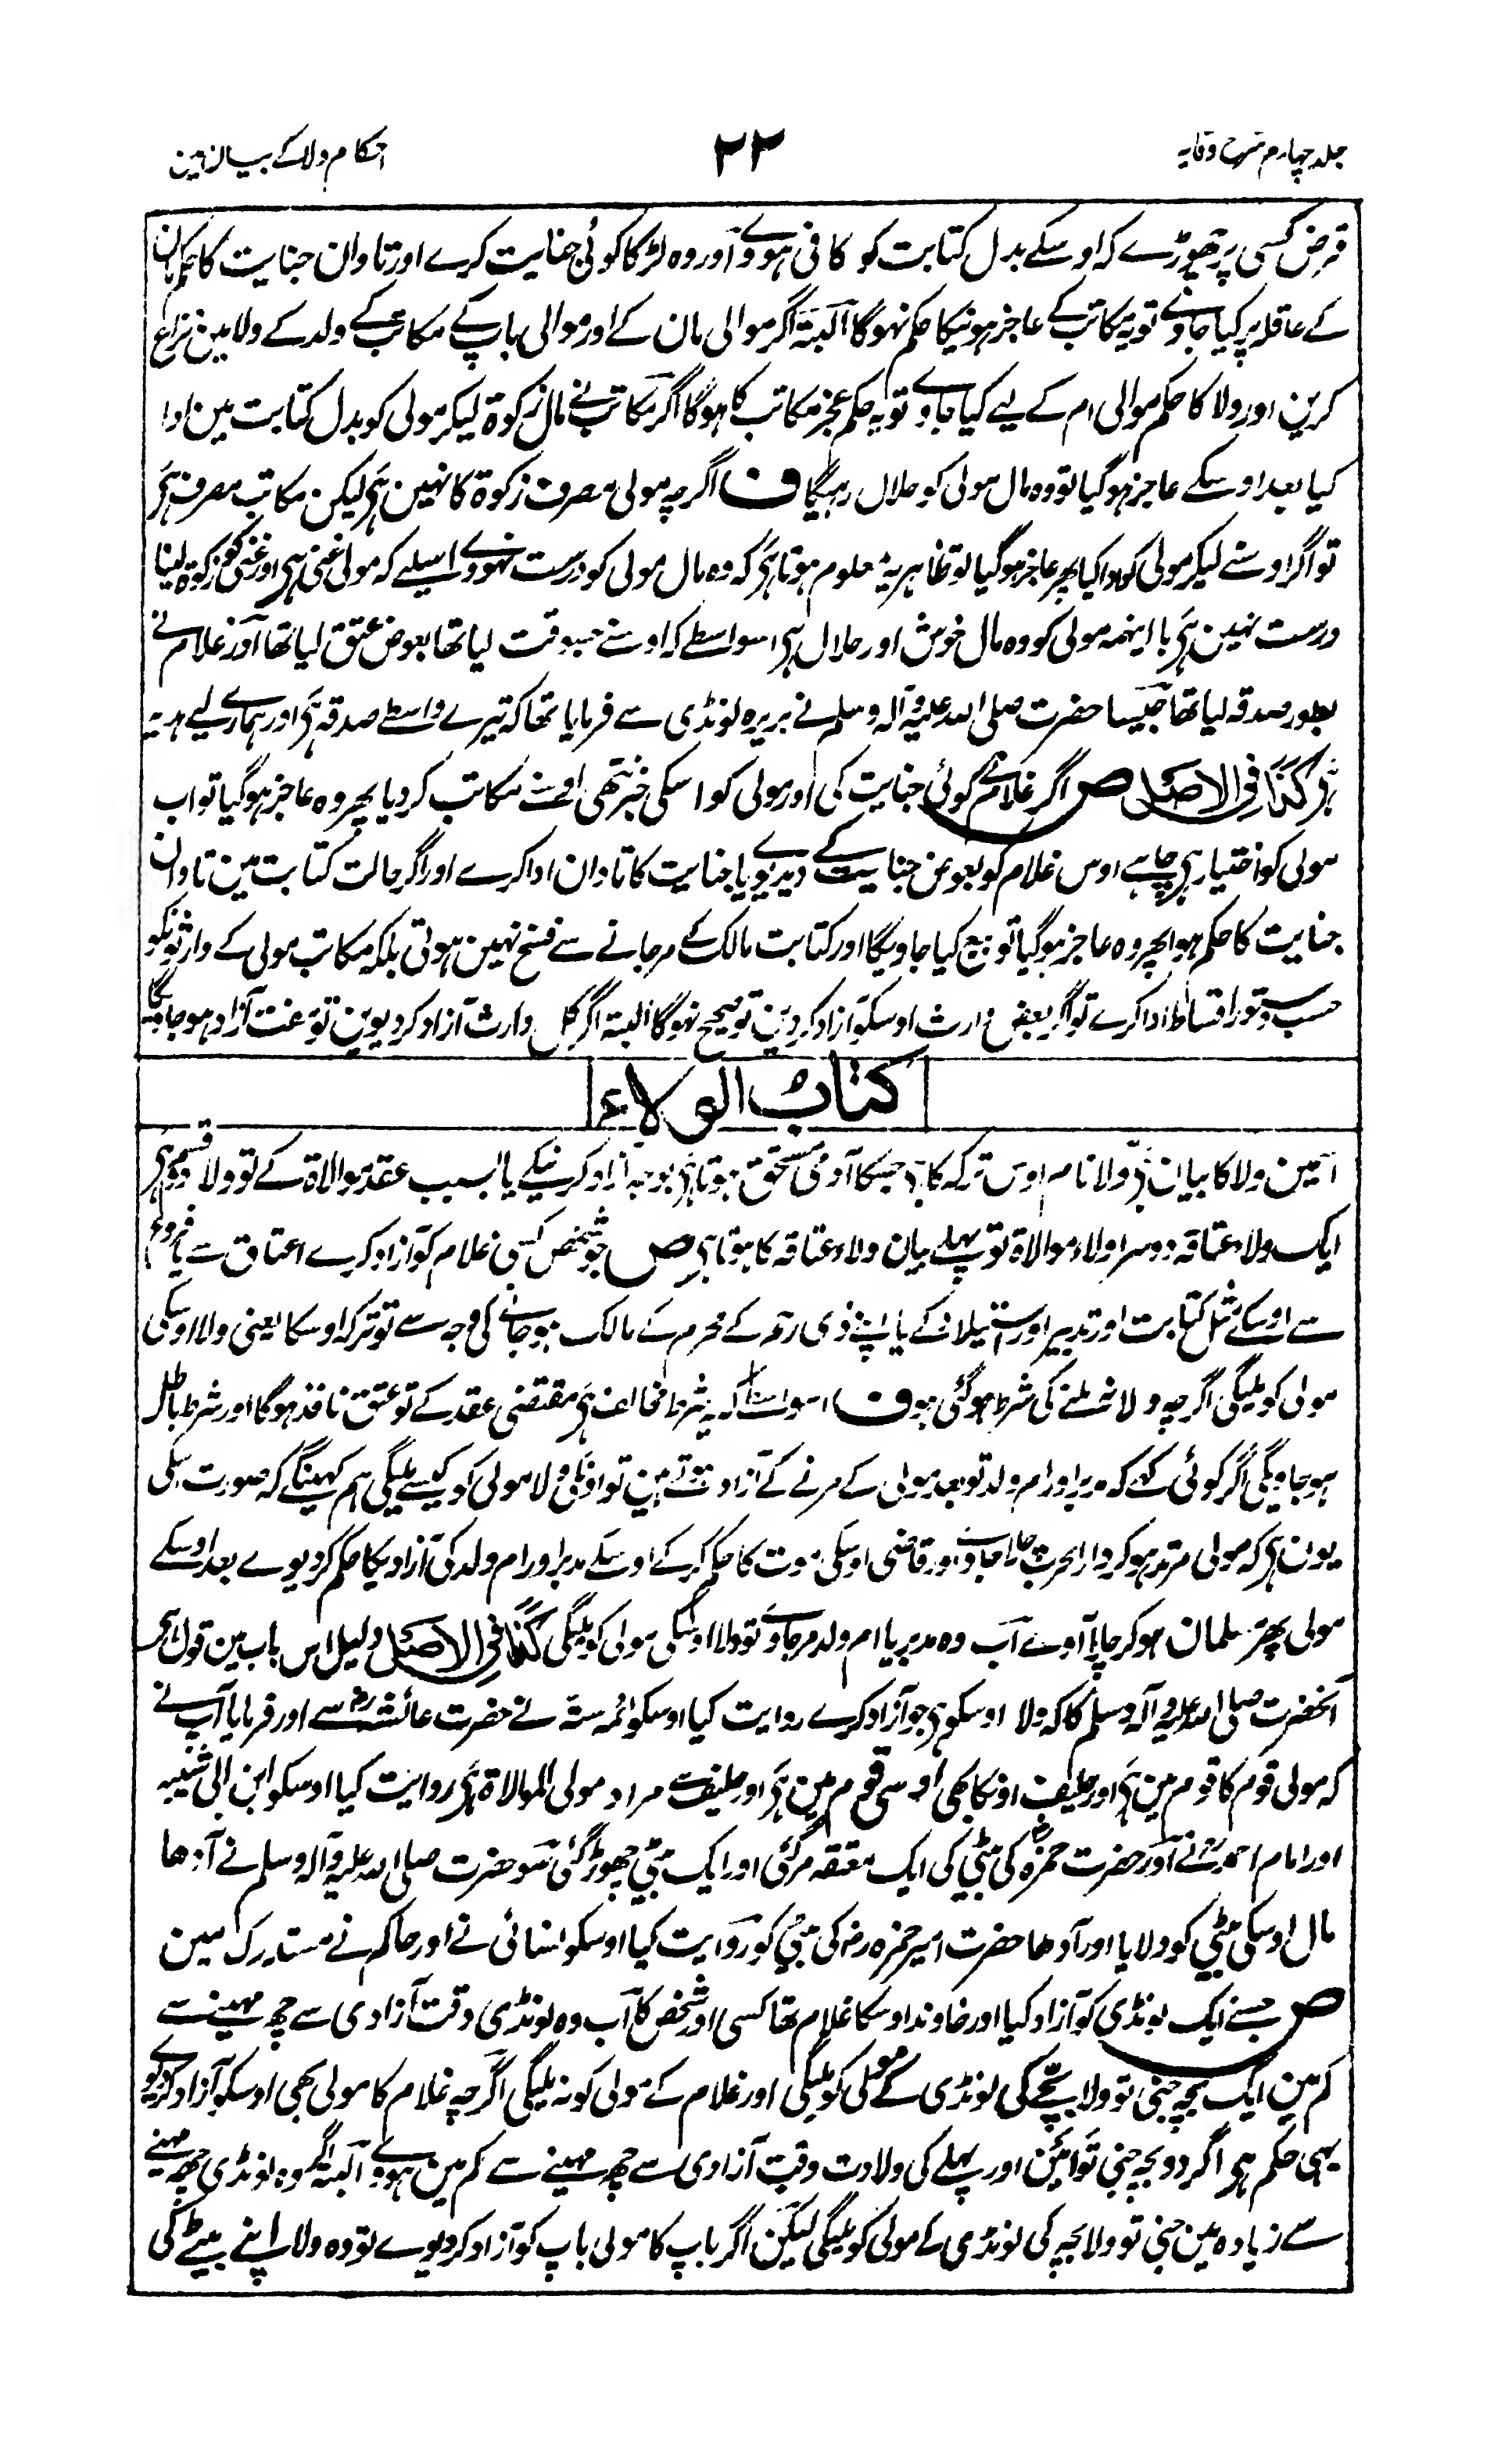 جلد چہارم شرح وقایہ
۲۲
احکام ولا کے بیان مین
قرض کسی پر چھوڑے کہ اوسکے بدل کتابت کو کافی ہووے اور وہ لڑکا کوئی جنایت کرے اور تاوان جنایت کا حکم مان
کے عاقلہ پر کیا جاوے تو یہ مکاتب کے عاجز ہونیکا حکم نہوگا البتہ اگر موالی مان کے اور موالی باپ کے مکاتب کے ولد کے ولا مین نزاع
کرین اور ولا کا حکم موالی ام کے لیے کیا جاوے تو یہ حکم عجز مکاتب کا ہوگا اگر مکاتب نے مال زکوۃ لیکر مولی کو بدل کتابت مین ادا
کیا بعد اوسکے عاجز ہوگیا تو وہ مال مولی کو حلال رہیگا ف اگرچہ مولی مصرف زکوۃ کا نہین ہی لیکن مکاتب مصرف ہی
تو اگر اوسنے لیکر مولی کو ادا کیا پھر عاجز ہوگیا تو ظاہر یہ معلوم ہوتا ہی کہ وہ مال مولی کو درست نہووے اسلیے کہ مولی غنی ہی اور غنی کو زکوۃ لینا
درست نہین ہی با اینہمہ مولی کو وہ مال خوش اور حلال ہی اسواسطے کہ اوسنے جسوقت لیا تھا بعوض عتق لیا تھا اور غلام نے
بطور صدقہ لیا تھا جیسا حضرت صلی اللہ علیہ وآلہ وسلم نے بریرہ لونڈی سے فرمایا تھا کہ تیرے واسطے صدقہ ہی اور ہمارے لیے ہدیہ
ہی کذا فی الاصل ص اگر غلام نے کوئی جنایت کی اور مولی کو اسکی خبر نتھی اوسنے مکاتب کر دیا پھر وہ عاجز ہوگیا تو اب
مولی کو اختیار ہی چاہے اوس غلام کو بعوض جنایت کے دیدیوے یا جنایت کا تاوان ادا کرے اور اگر حالت کتابت مین تاوان
جنایت کا حکم ہوا پھر وہ عاجز ہوگیا تو بیع کیا جاویگا اور کتابت مالک کے مرجانے سے فسخ نہین ہوتی بلکہ مکاتب مولی کے وارثونکو
حسب دستور اقساط ادا کرے تو اگر بعض وارث اوسکو آزاد کردین تو صحیح نہوگا البتہ اگر کل وارث آزاد کردیوین تو مفت آزاد ہوجاویگا
کتاب الولاء
اسمین ولا کا بیان ہی ولا نام اوس ترکہ کا ہی جسکا آدمی مستحق ہوتا ہی بوجہ آزاد کرنیکے یا بسبب عقد موالاۃ کے تو ولا دو قسم ہی
ایک ولاء عتاقہ دوسرا ولاء موالاۃ تو پہلے بیان ولاء عتاقہ کا ہوتا ہی ص جو شخص کسی غلام کو آزاد کرے اعتاق سے یا فروع
سے اوسکے مثل کتابت اور تدبیر اور استیلاد کے یا اپنے ذی رحم کے محرم کے مالک ہوجانے کی وجہ سے تو ترکہ اوسکا یعنی ولا اوسکی
مولی کو ملیگی اگرچہ ولا نہ ملنے کی شرط ہوگئی ہو ف اسواسطے کہ یہ شرط مخالف ہی مقتضی عقد کے تو عتق نافذ ہوگا اور شرط باطل
ہوجاویگی اگر کوئی کہے کہ مدبر اور ام ولد تو بعد مولی کے مرنے کے آزاد ہوتے ہین تو اونکی ولا مولی کو کیسے ملیگی ہم کہینگے کہ صورت اسکی
یون ہی کہ مولی مرتد ہوکر دار الحرب چلا جاوے اور قاضی اوسکی موت کا حکم کرکے اوسکے مدبر اور ام ولد کی آزادیکا حکم کردیوے بعد اوسکے
مولی پھر مسلمان ہوکر چلا آوے اب وہ مدبر یا ام ولد مرجاوے تو ولا اوسکی مولی کو ملیگی کذا فی الاصل دلیل اس باب مین قول ہی
آنحضرت صلی اللہ علیہ وآلہ وسلم کا کہ ولا اوسکو ہی جو آزاد کرے روایت کیا اوسکو ائمہ ستہ نے حضرت عائشہ رض سے اور فرمایا آپ نے
کہ مولی قوم کا قوم مین ہی اور حلیف اونکا بھی اوسی قوم مین ہی اور حلیف سے مراد مولی الموالاۃ ہی روایت کیا اوسکو ابن ابی شیبہ
اور امام احمد رح نے اور حضرت حمزہ رض کی بیٹی کی ایک معتقہ مرگئی اور ایک بیٹی چھوڑ گئی سو حضرت صلی اللہ علیہ وآلہ وسلم نے آدھا
مال اوسکی بیٹی کو دلایا اور آدھا حضرت امیر حمزہ رض کی بیٹی کو روایت کیا اوسکو نسائی نے اور حاکم نے مستدرک مین
ص جسنے ایک لونڈی کو آزاد کیا اور خاوند اوسکا غلام تھا کسی اور شخص کا اب وہ لونڈی وقت آزادی سے چھ مہینے سے
کم مین ایک بچہ جنی تو ولا بچے کی لونڈی کے مولی کو ملیگی اور غلام کے مولی کو نہ ملیگی اگرچہ غلام کا مولی بھی اوسکو آزاد کردیوے
یہی حکم ہی اگر دو بچہ جنی توأمین اور پہلے کی ولادت وقت آزادی سے چھ مہینے سے کم مین ہووے البتہ اگر وہ لونڈی چھ مہینے
سے زیادہ مین جنی تو ولا بچہ کی لونڈی کے مولی کو ملیگی لیکن اگر باپ کا مولی باپ کو آزاد کردیوے تو وہ ولا اپنے بیٹے کی